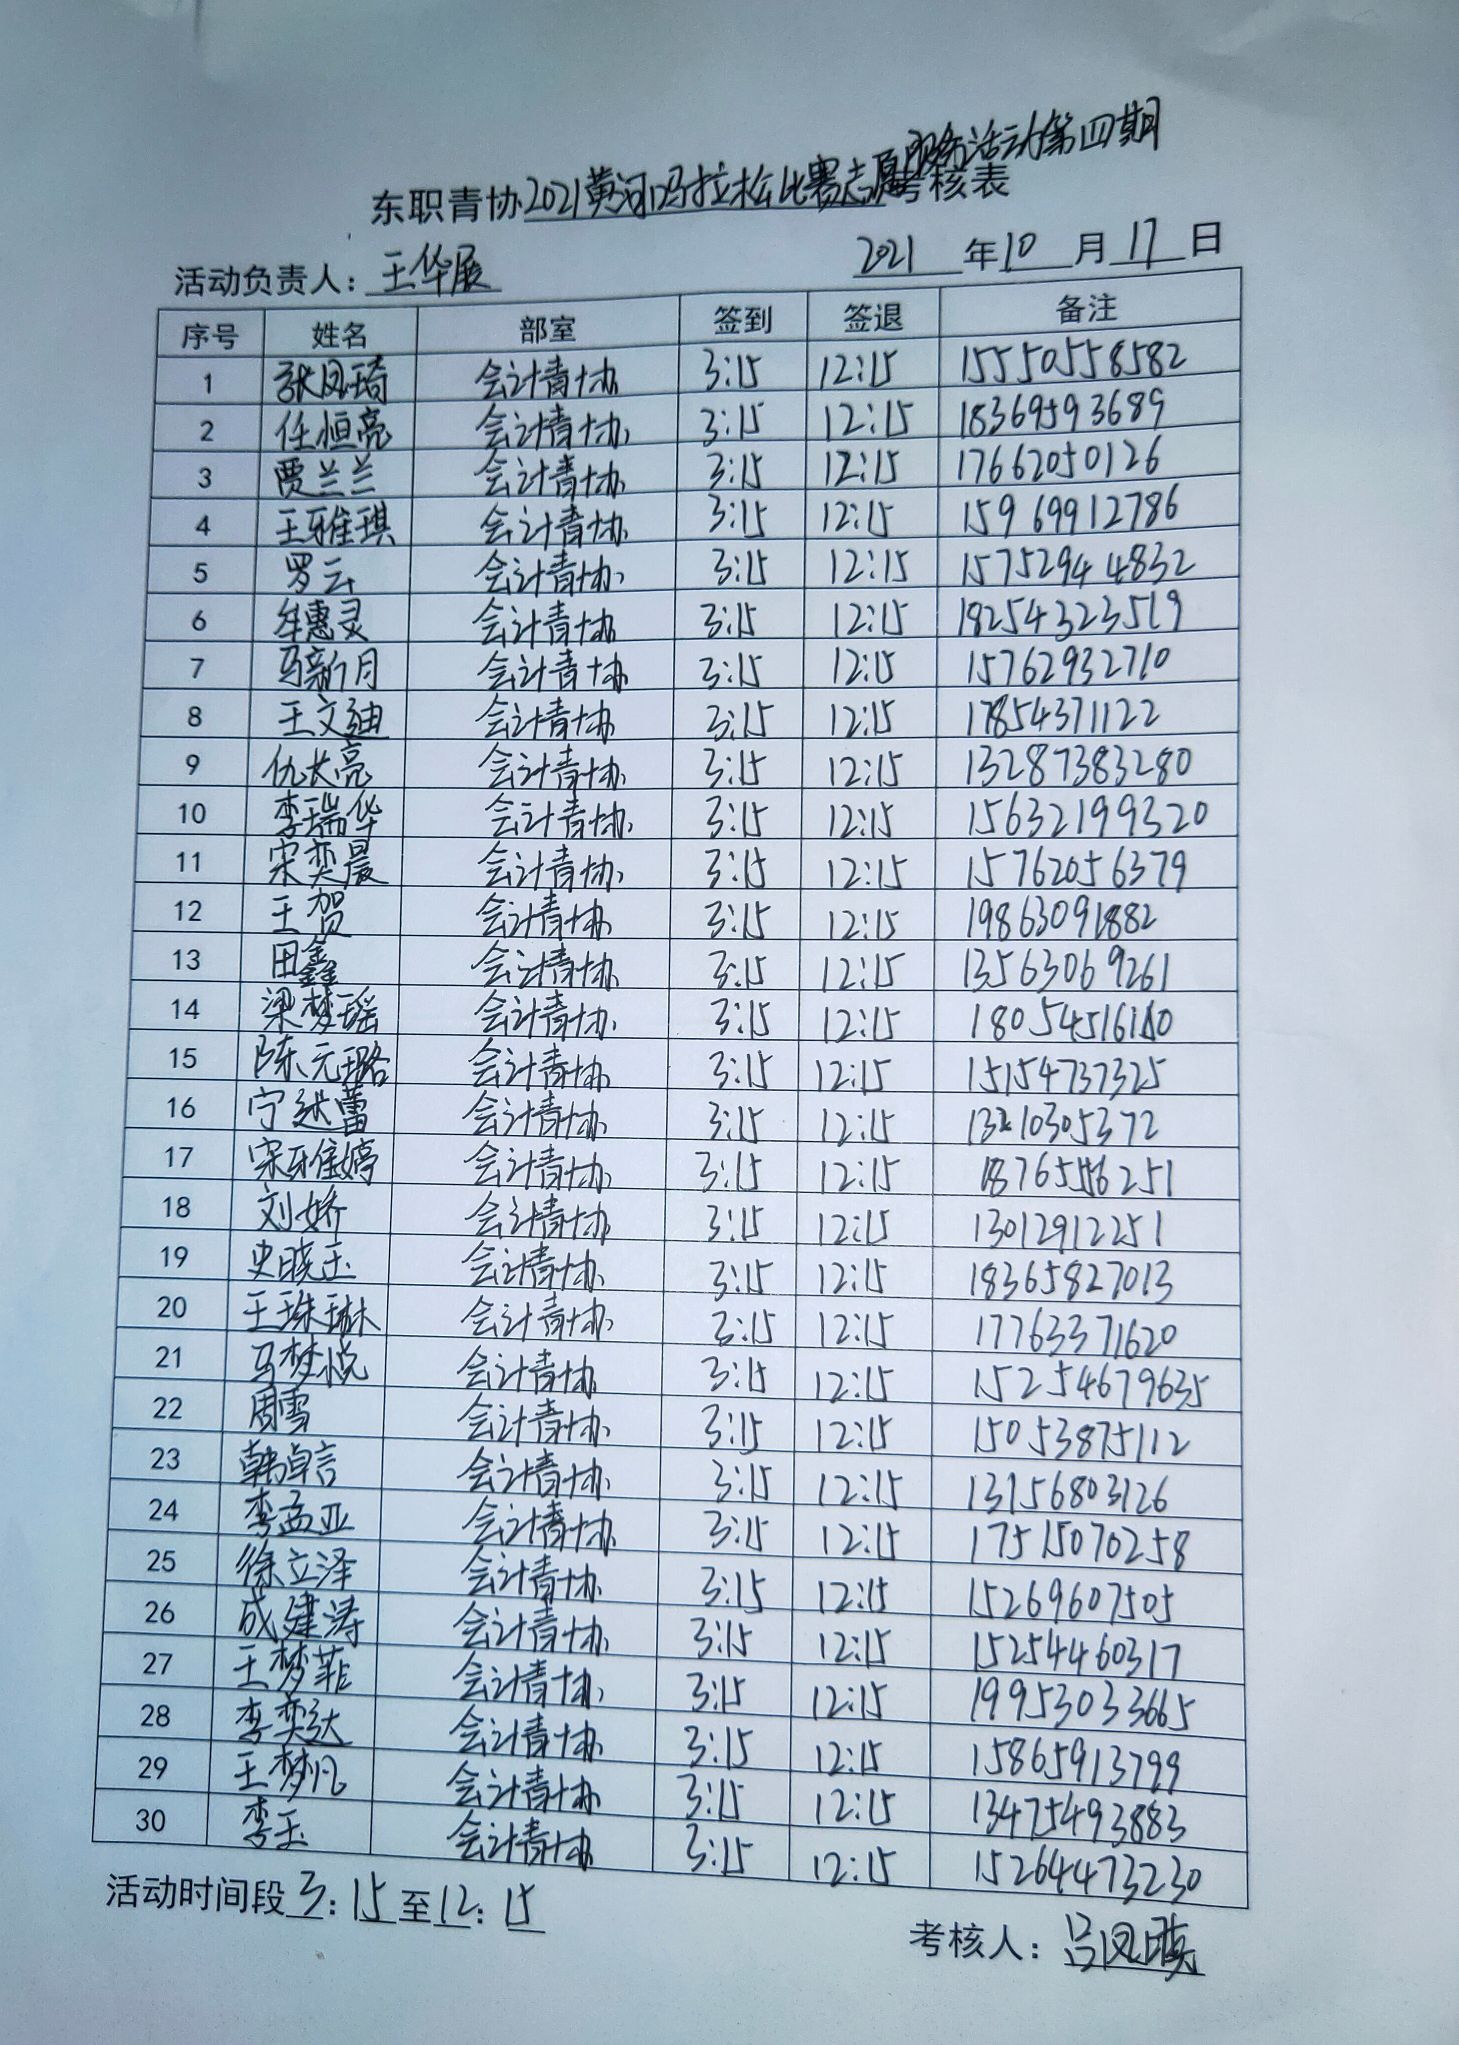 东职青协2021黄河口马拉松比赛志愿服务活动第四期考核表
活动负责人：王华展 2021年10月17日
序号 姓名 部室 签到 签退 备注
1 张凤琦 会计青协 3:15 12:15 15550558582
2 任恒亮 会计青协 3:15 12:15 18369593689
3 贾兰兰 会计青协 3:15 12:15 17662050126
4 王雅琪 会计青协 3:15 12:15 15969912786
5 罗云 会计青协 3:15 12:15 15752944832
6 牟惠灵 会计青协 3:15 12:15 18254323519
7 马新月 会计青协 3:15 12:15 15762932710
8 王文迪 会计青协 3:15 12:15 17854371122
9 仇长亮 会计青协 3:15 12:15 13287383280
10 李瑞华 会计青协 3:15 12:15 15632199320
11 宋奕晨 会计青协 3:15 12:15 15762056379
12 王贺 会计青协 3:15 12:15 19863091882
13 田鑫 会计青协 3:15 12:15 13563069261
14 梁梦瑶 会计青协 3:15 12:15
15 陈元璐 会计青协 3:15 12:15 15154737325
16 宁述蕾 会计青协 3:15 12:15
17 宋雅婷 会计青协 3:15 12:15
18 刘娇 会计青协 3:15 12:15 13012912251
19 史晓玉 会计青协 3:15 12:15 18365827013
20 王珠琳 会计青协 3:15 12:15 17763371620
21 马梦悦 会计青协 3:15 12:15 15254679635
22 周雪 会计青协 3:15 12:15 15053875112
23 韩卓言 会计青协 3:15 12:15 13156803126
24 李孟亚 会计青协 3:15 12:15 17515070258
25 徐立泽 会计青协 3:15 12:15 15269607505
26 成建涛 会计青协 3:15 12:15 15254460317
27 王梦菲 会计青协 3:15 12:15 19953033665
28 李奕达 会计青协 3:15 12:15 15865913799
29 王梦凡 会计青协 3:15 12:15 13475493883
30 李玉 会计青协 3:15 12:15 15264473230
活动时间段3:15至12:15
考核人：吕凤琪